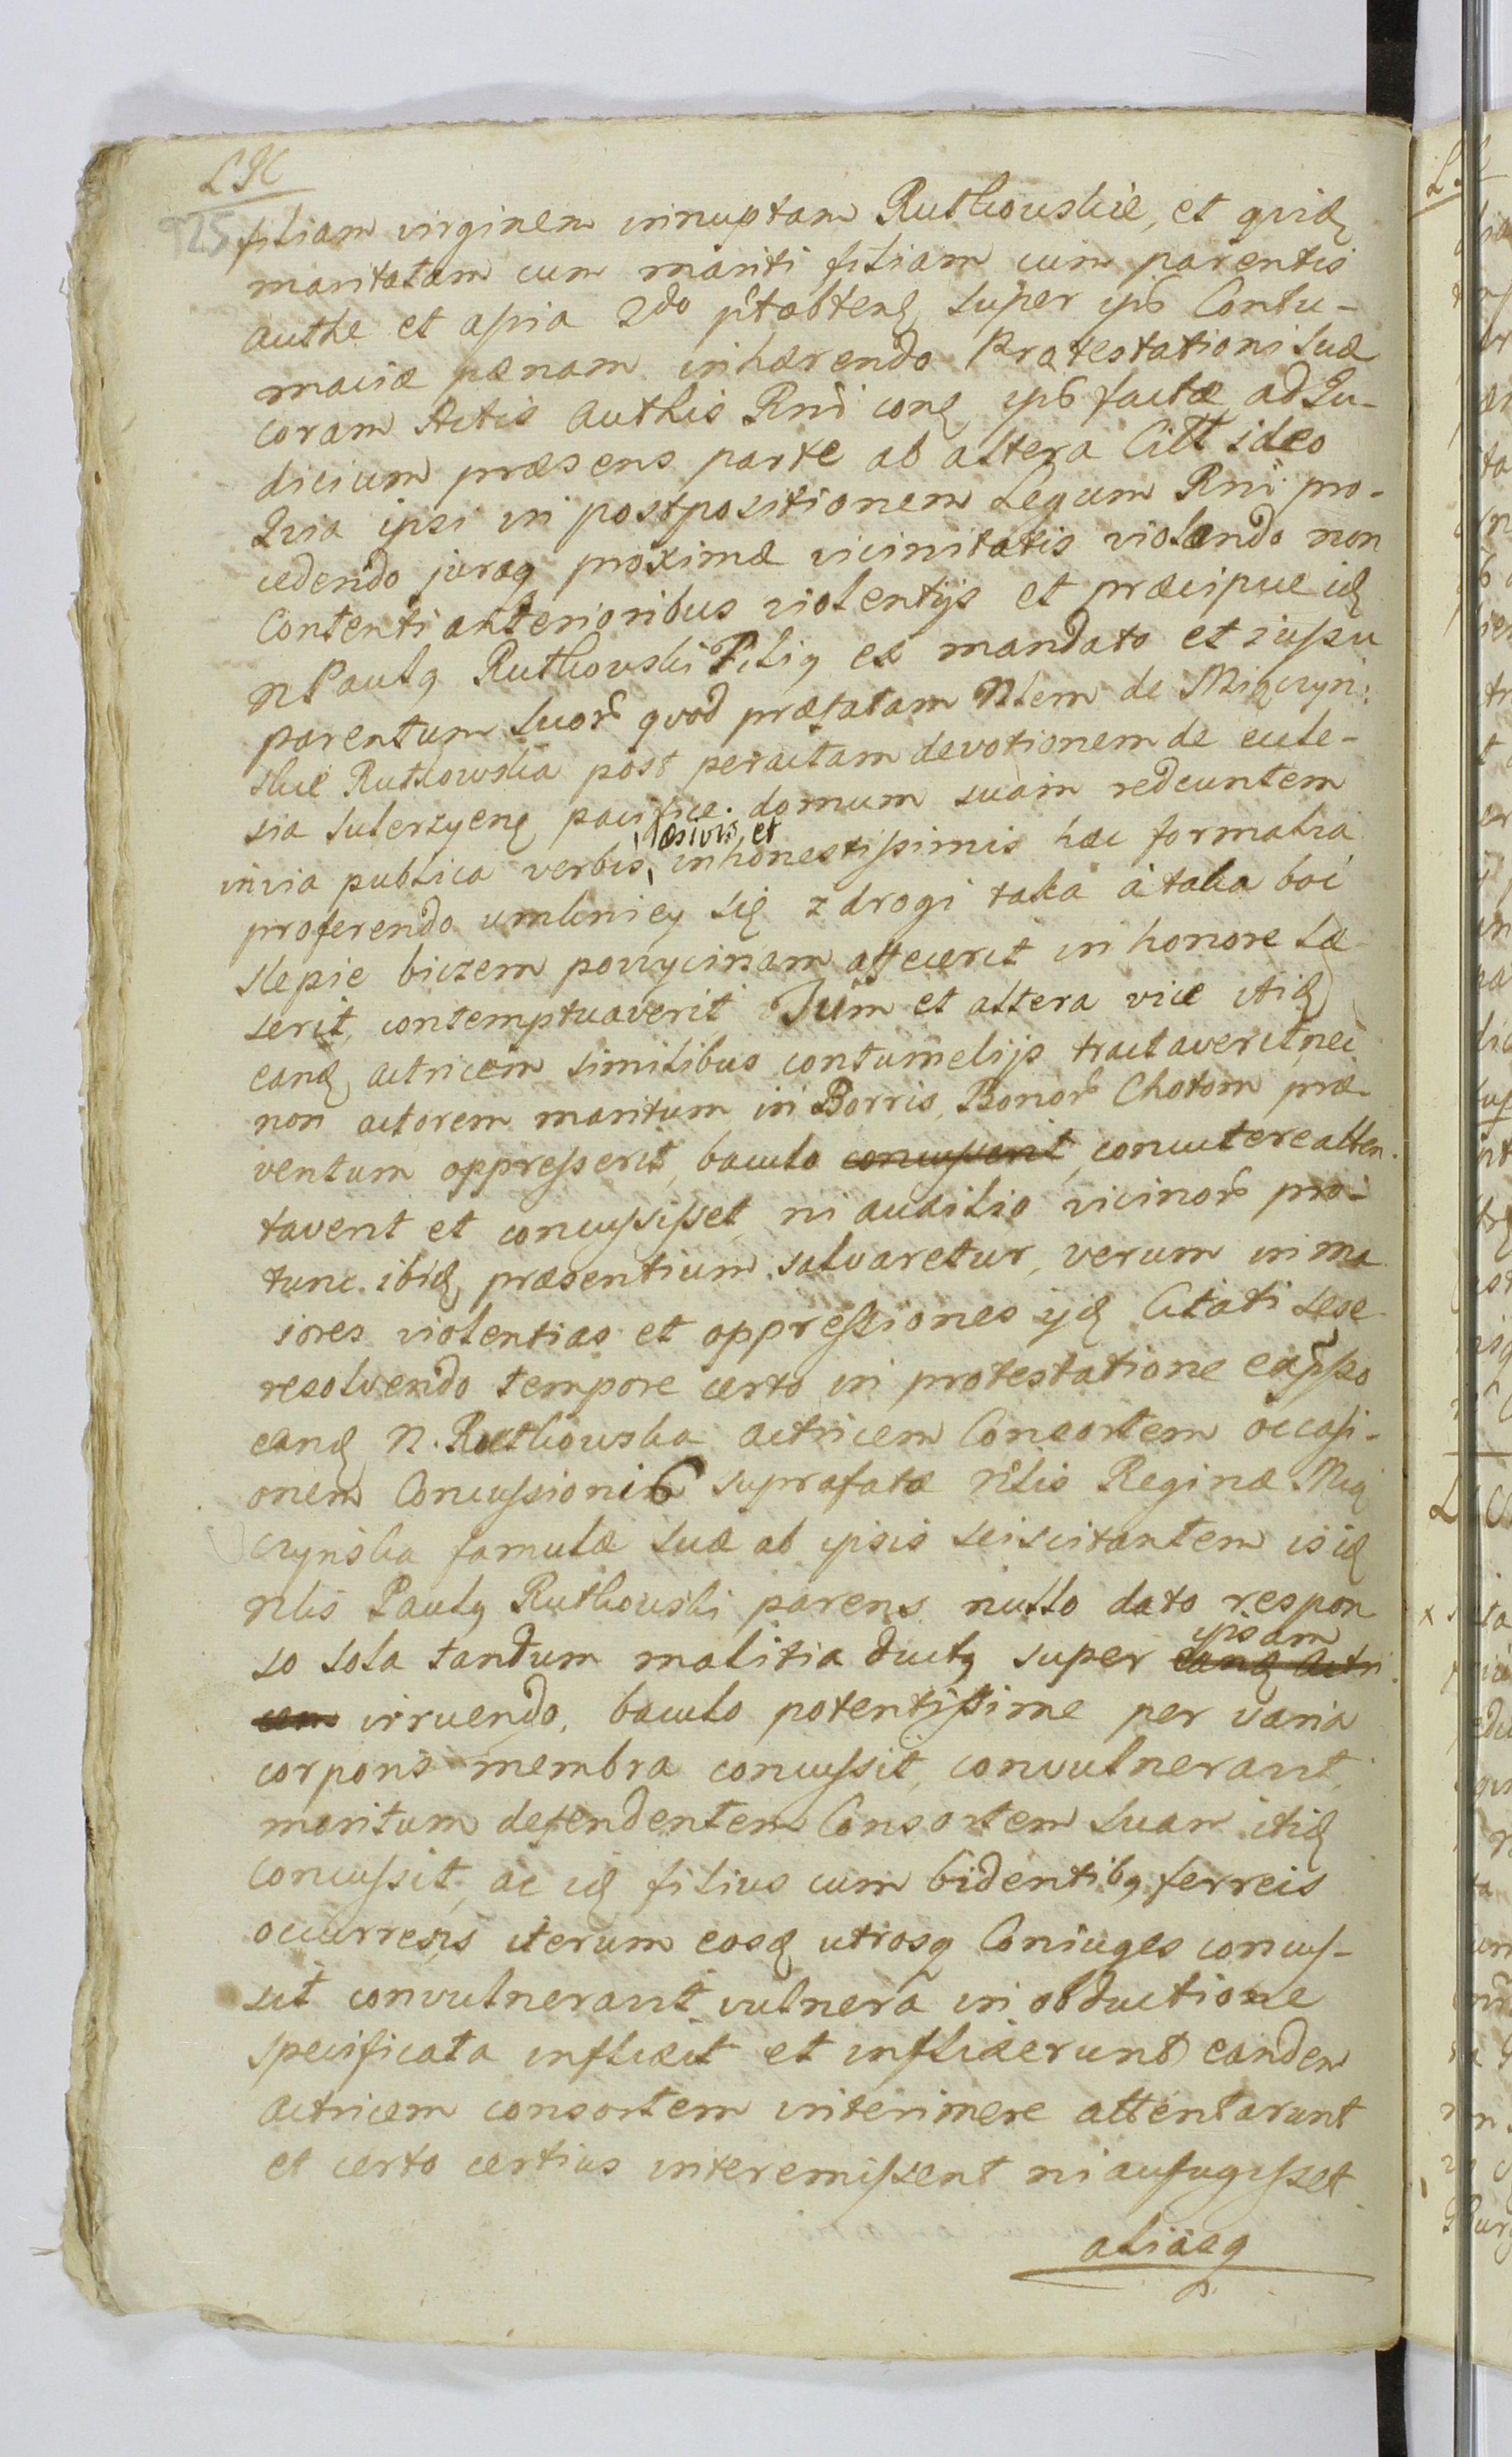 925
filiam virginem innuptam Ruthowskie, et qvidę
maritatam cum mariti filiam cum parentis
authe et assia 2do ptabtenę super ips Contu-
maciæ pænam inhærendo Protestationi suæ
coram Actis Authis Rni conę ips factæ ad Ju-
dicium præsens parte ab altera Citt ideo
Qvia ipsi in postpositionem Legum Rni pro-
cedendo juraq proximæ vicinitatis violando non
Contenti anterioribus violentijs et præcipue idę
N Paulq Ruthowski Filiq ex mandato et iussu
parentum suor qvod præfatam Nlem de Miączyn:
skie Ruthowska post peractam devotionem de eccle-
sia Suterzyenę pacifice domum suam redeuntem
læsivis et
in via publica verbis inhonestissimis hæc formalia
proferendo umkniey się z drogi taka à taka boć
slepie biczem powycinam affecerit in honore læ-
serit, contemptuaverit Tum et altera vice itidę
eandę actricem similibus contumelijs tractaverit nec
non actorem maritum in Borris Bonor Chotom præ-
ventum oppresserit, baculo concusserit, concutere atten-
taverit et concussisset ni auxilio vicinor pro-
tunc ibidę præsentium salvaretur, verum in ma
iores violentias et oppressiones ijdę Citati sese
resolvendo tempore certo in protestatione expsso
eandę N. Ruthowska actricem Consortem occasi-
onem Concussionis suprafatæ Nlis Reginæ Mią
czynska famulæ suæ ab ipsis sciscitantem is idę
Nlis Paulq Ruthowski parens nullo dato respon
so sola tandum malitia ductq super eandę Actri
ipsam
cem irruendo, baculo potentissime per varia
corporis membra concussit, convulneravit,
maritum defendentem Consortem suam itidę
concussit, ac idę filius cum bidentibq ferreis
occurrens iterum eosdę utrosq Coniuges concus-
sit convulneravit vulnera in obductione
specificata inflixit et inflixerunt eandem
actricem consortem interimere attentarunt
et certo certius interemissent ni aufugisset
aliaeq